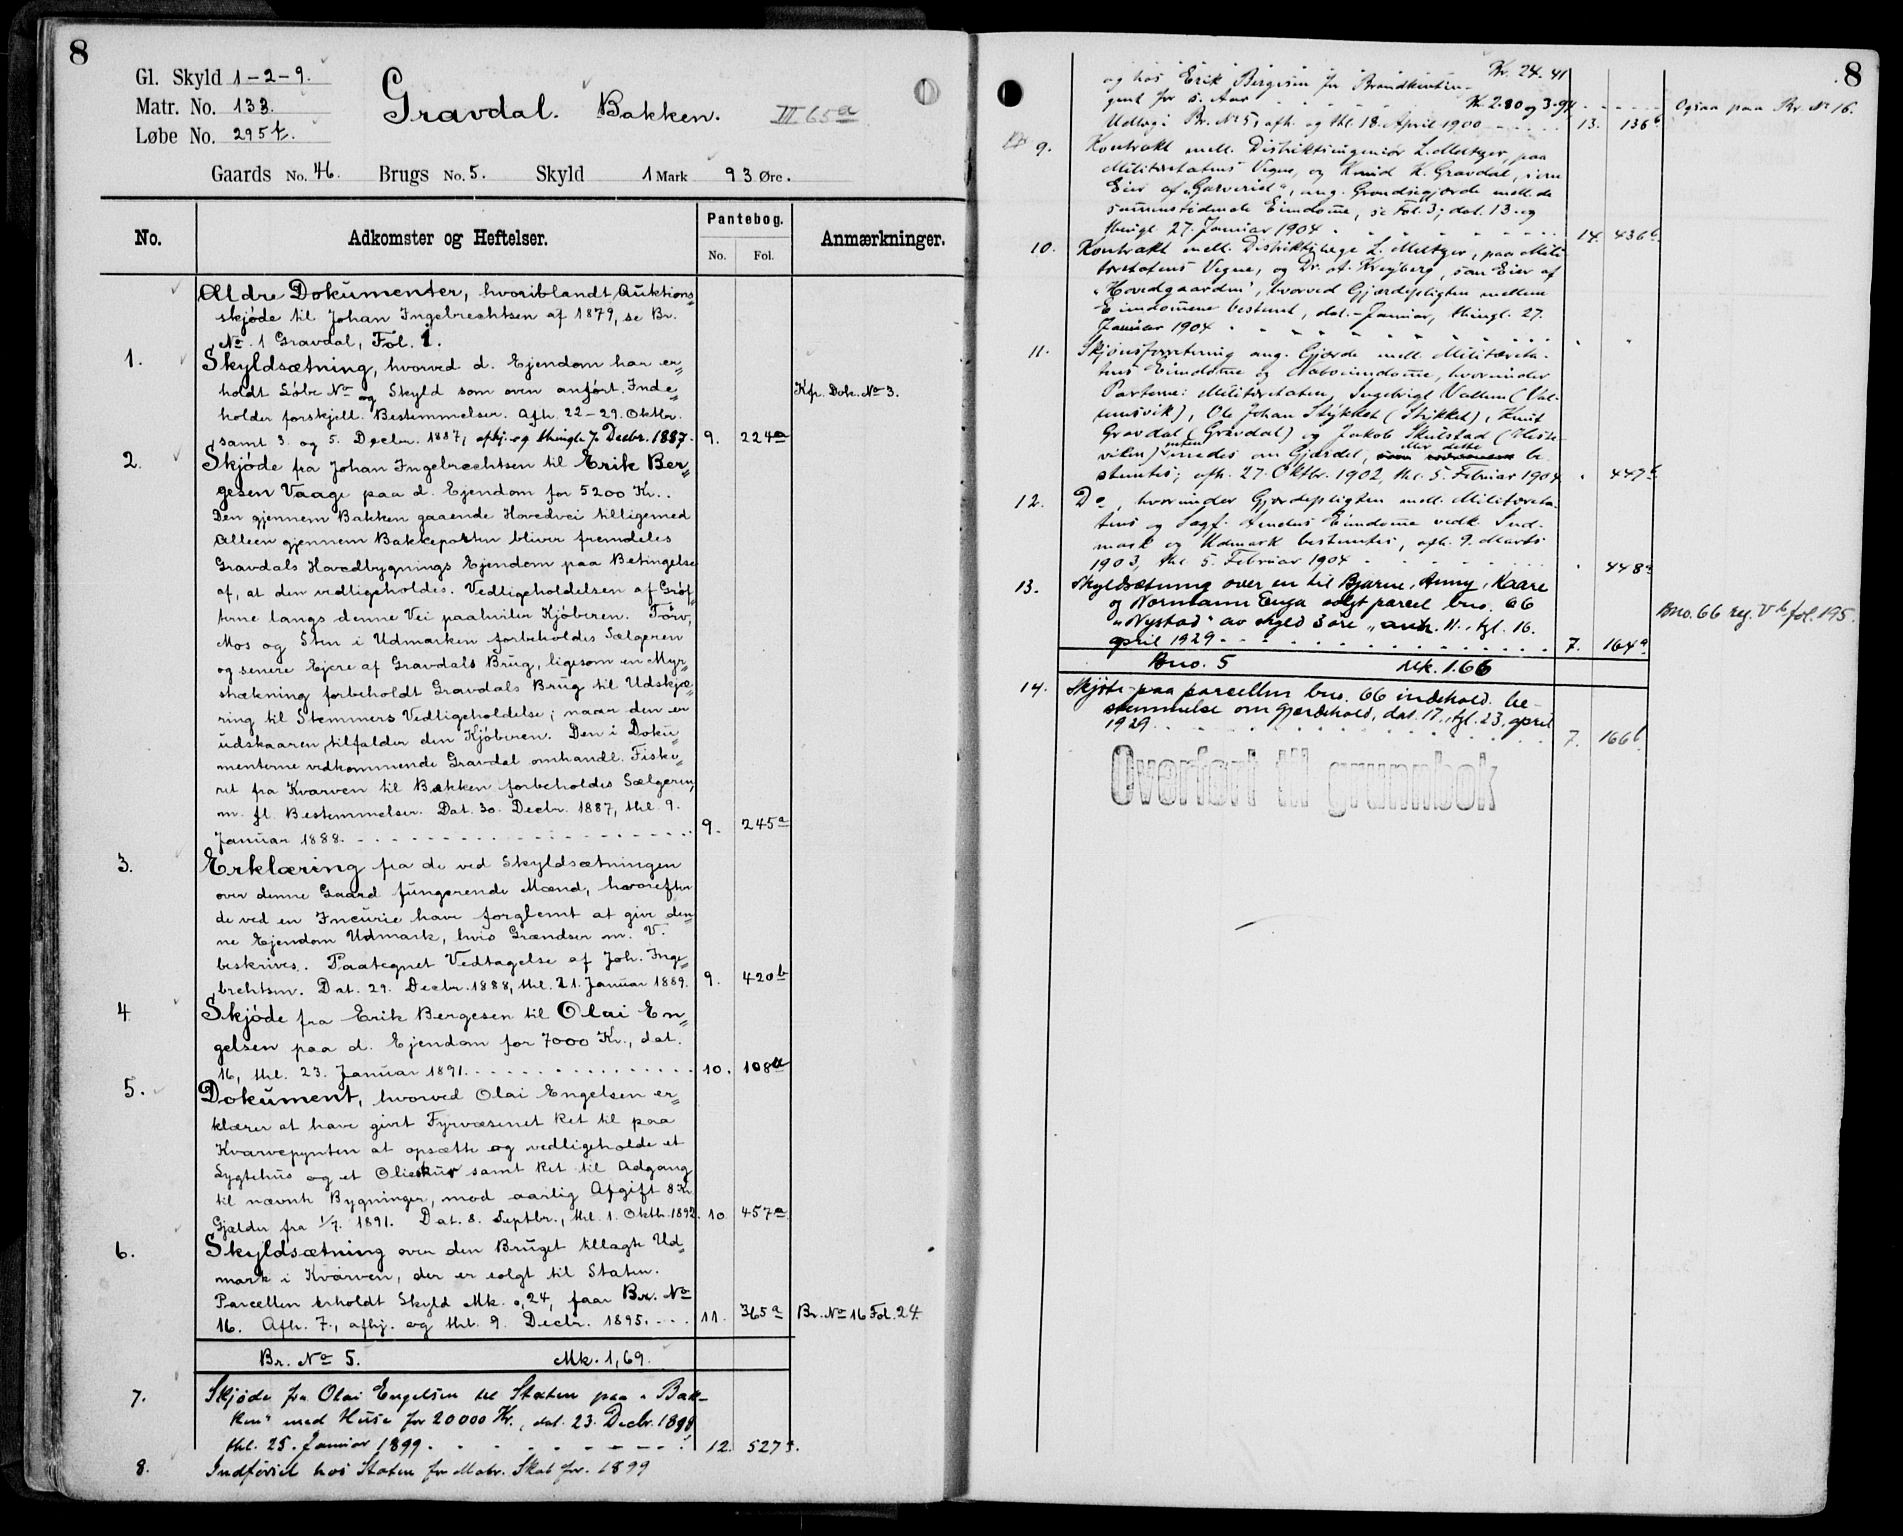 8
Gl. Skyld 1-2-9.
Matr. No. 133.
Løbe No. 295t.
Gravdal. Bakken. III 65a
Gaards No. 46. Brugs No. 5. Skyld 1 Mark 93 Øre.
No. Adkomster og Heftelser. Pantebog. No. Fol. Anmærkninger.
Ældre Dokumenter, hvoriblandt Auktions-
skjøde til Johan Ingebrechtsen af 1879, se Br.
No. 1 Gravdal, Fol. 1.
1. Skyldsætning, hvorved d. Ejendom har er-
holdt Løbe No og Skyld som oven anført. Inde- Kfr. Dok. No 3.
holder forskjell. Bestemmelser. Afh. 22-29. Oktbr.
samt 3. og 5. Decbr. 1887, afhj. og thingl. 7. Decbr. 1887. 9. 224a
2. Skjøde fra Johan Ingebrechtsen til Erik Ber-
gesen Vaage paa d. Ejendom for 5200 Kr..
Den gjennem Bakken gaaende Hovedvei tilligemed
Alleen gjennem Bakkeporten bliver fremdeles
Gravdals Hovedbygnings Ejendom paa Betingelse
af, at den vedligeholdes. Vedligeholdelsen af Grøf-
terne langs denne Vei paahviler Kjøberen. Törv,
Mos og Sten i Udmarken forbeholdes Sælgeren
og senere Ejere af Gravdals Brug, ligesom en Myr-
strækning forbeholdt Gravdals Brug til Udskjæ-
ring til Stemmers Vedligeholdelse; naar den er
udskaaren, tilfalder den Kjøberen. Den i Doku-
menterne vedkommende Gravdal omhandl. Fiske-
ret fra Kvarven til Bækken forbeholdes Sælgeren,
m. fl. Bestemmelser. Dat. 30. Decbr. 1887, thl. 9.
Januar 1888. 9. 245a
3. Erklæring fra de ved Skyldsætningen
over denne Gaard fungerende Mænd, hvorefter
de ved en Incurie have forglemt at give den-
ne Ejendom Udmark, hvis Grændser m. V.
beskrives. Paategnet Vedtagelse af Joh. Inge-
brechtsen. Dat. 29. Decbr. 1888, thl. 21. Januar 1889. 9. 420b
4 Skjøde fra Erik Bergesen til Olai En-
gelsen paa d. Ejendom for 7000 Kr., dat.
16, thl. 23. Januar 1891. 10. 108a
5. Dokument, hvorved Olai Engelsen er-
klærer at have givet Fyrvæsenet Ret til paa
Kvarvepynten at opsætte og vedligeholde et
Lygtehus og et Olieskur samt Ret til Adgang
til nævnte Bygninger, mod aarlig Afgift 8 Kr.
Gjælder fra 1/7. 1891. Dat. 8. Septbr., thl. 1. Oktbr. 1892. 10 457a
6. Skyldsætning over den Bruget tillagte Ud-
mark i Kvarven, der er solgt til Staten.
Parcellen erholdt Skyld Mk. 0,24, faar Br. No
16. Afh. 7., afhj. og thl. 9. Decbr. 1895. 11. 365a Br. No 16 Fol. 24.
Br. No 5. Mk. 1,69.
7. Skjøde fra Olai Engelsen til Staten paa "Bak-
ken" med Huse for 20000 Kr., dat. 23. Decbr. 1898,
thl. 25. Januar 1899. 12. 527
8. Indførsel hos Staten for Matr. Skat for 1899
8
Kr. 24.41
og hos Erik Bergesen for Brandkontin-
gent for 5. Aar Kr. 2.80 og 3.94 Ogsaa paa Br. No 16.
Udlæg i Br. No 5, afh. og thl. 18. April 1900 13. 136b
9. Kontrakt mell. Distriktsingeniør L. Meltzer, paa
Militæretatens Vegne, og Knud K. Gravdal, som
Eier af "Garveriet", ang. Grændsegjærde mell. de
sammenstødende Eiendomme, se Fol. 3; dat. 13. og
thingl. 27. Januar 1904 14. 436b
10. Kontrakt mell. L. Meltzer, paa Mili-
tæretatens Vegne, og Dr. A. Kreyberg, som Eier af
"Hovedgaarden", hvorved Gjærdepligten mellem
Eiendommene bestemt, dat. - Januar, thingl. 27.
Januar 1904
11. Skjønsforretning ang. Gjærde mell. Militæreta-
tens Eiendomme og Naboeiendomme, hvorunder
Parterne: Militæretaten, Ingebrigt Vallem
Ole Johan Stykket (Stykket), Knut
Gravdal (Gravdal) og Jakob Skulstad (Heste-
viken) enten enedes om Gjærdet, eller dette be-
stemtes; afh. 27. Oktbr. 1902, thl. 5. Februar 1904 447b
12. Do, hvorunder Gjærdepligten mell. Militæreta-
tens og Sagf. Eiendomme vedk. Ind-
mark og Udmark bestemtes, afh. 9. Marts
1903, thl. 5. Februar 1904 448a
13. Skyldsætning over en til Bjarne, Anny, Kaare
og Normann Enga solgt parcel bno. 66
"Nystad" av skyld 3 øre, avh. 11., tgl. 16. Bno. 66 reg. Vb fol. 195.
april 1929 7. 164a
Bno. 5 Mk. 1.66
14. Skjøte paa parcellen bno. 66 indehold. be-
stemmelse om gjerdehold, dat. 17., tgl. 23. april
1929 7. 166b
Overført til grunnbok